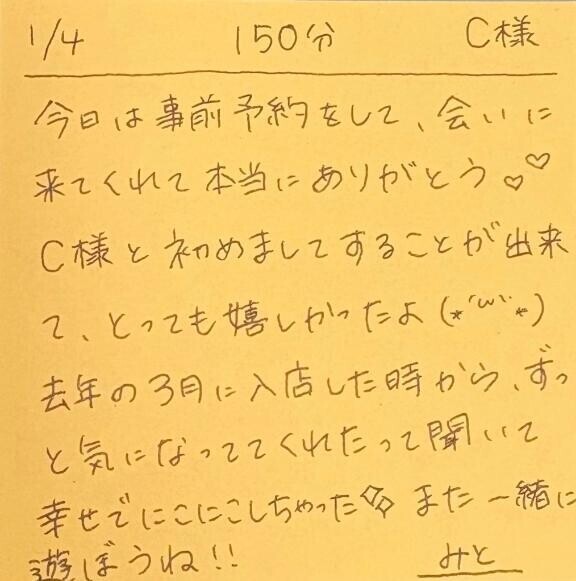 1/4 150分 C様
今日は事前予約をして、会いに
来てくれて本当にありがとう♡♡
C様と初めましてすることが出来
て、とっても嬉しかったよ(*´ω`*)
去年の3月に入店した時から、ずっ
と気になっててくれたって聞いて
幸せでにこにこしちゃった◇◇ また一緒に
遊ぼうね!!
みと